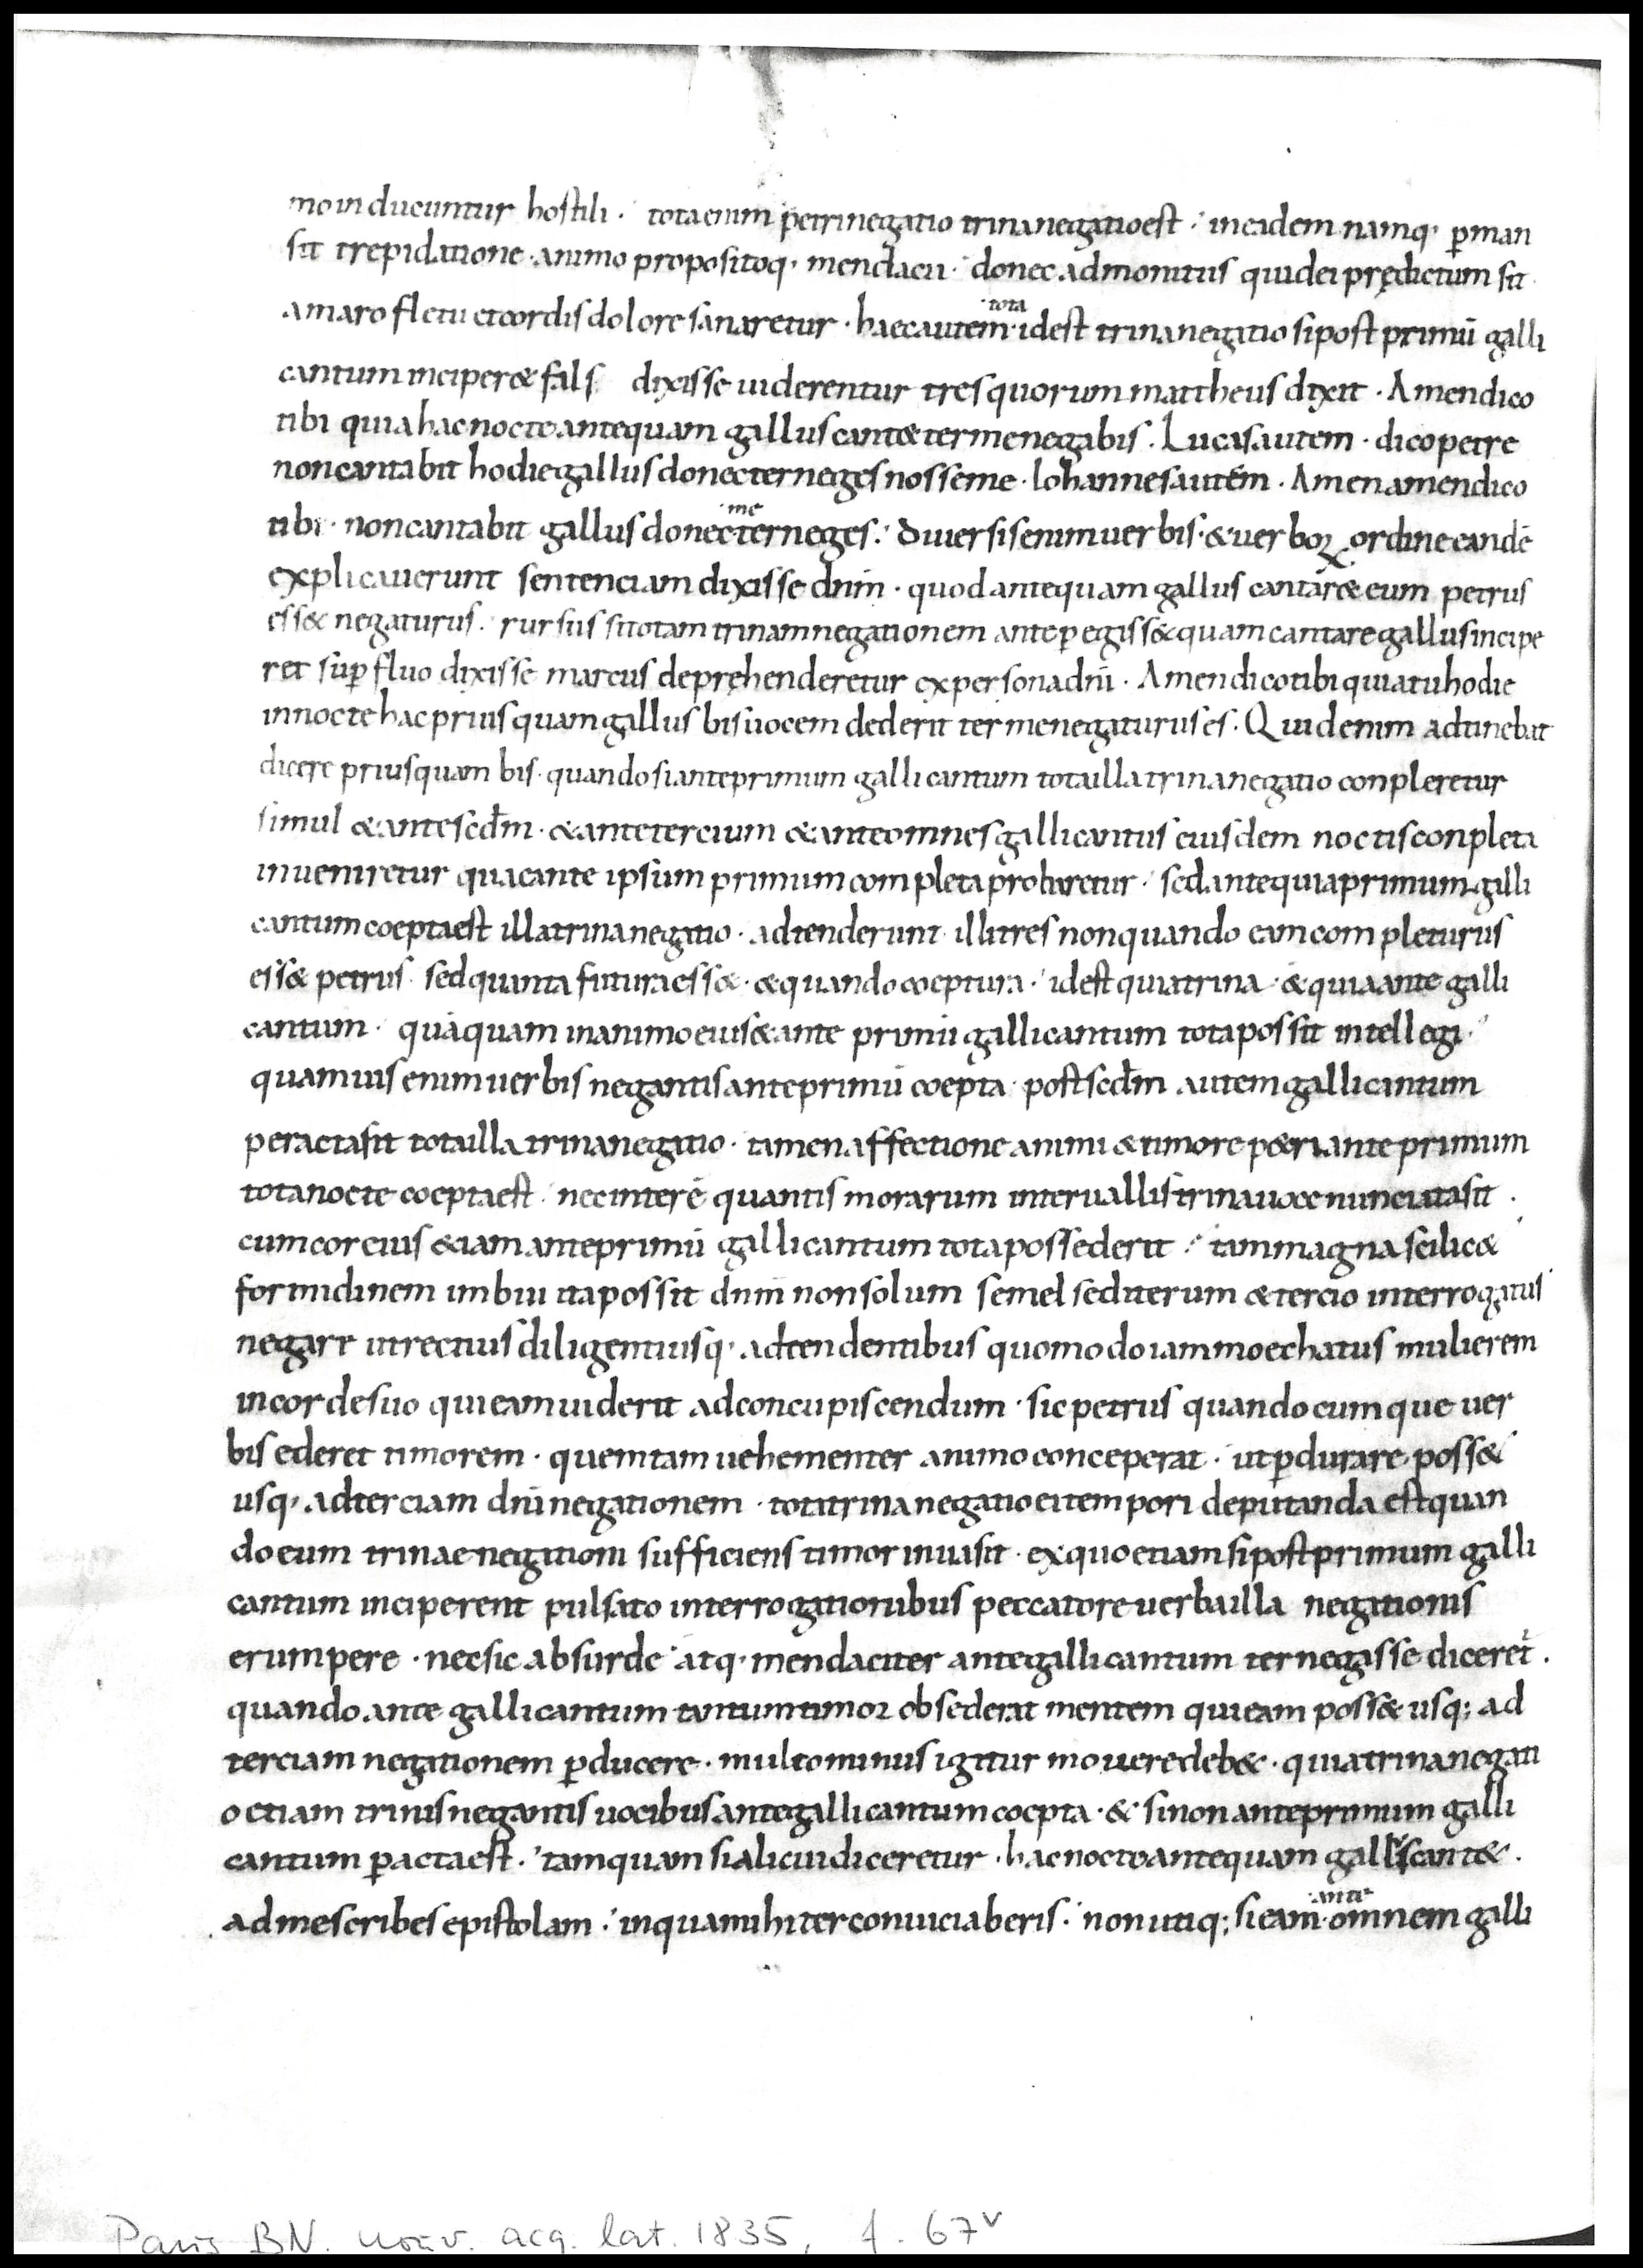 mo inducuntur hostili· tota enim petri negatio trina negatio est· in eadem namq· ꝑman
sit trepidatione· animo propositoq· mendacii· donec admonitus quid ei prędictum sit
amaro fletu et cordis dolore sanaretur· haec autem ·tota· id est trina negatio si post primū galli
cantum inciper& fals dixisse uiderentur tres quorum mattheus dixit· Amen dico
tibi quia hac nocte antequam gallus cant& ter me negabis· Lucas autem· dico petre
non cantabit hodie gallus donec ter neges nosse me· Iohannes autem· Amen amen dico
tibi· non cantabit gallus donec me ter neges· Diuersis enim uerbis· & uerboꝝ ordine eandē
explicauerunt sentenciam dixisse dnm̄· quod antequam gallus cantar& eum petrus
ess& negaturus· rursus si totam trinam negationem ante ꝑegiss& quam cantare gallus incipe
ret suꝑfluo dixisse marcus depręhenderetur ex persona dnī· Amen dico tibi quia tu hodie
in nocte hac prius quam gallus bis uocem dederit ter me negaturus es· Quid enim adtinebat
dicere priusquam bis· quando si ante primum galli cantum tota illa trina negatio conpleretur
simul & ante scdm̄· & ante tercium & ante omnes galli cantus eiusdem noctis conpleta
inueniretur quae ante ipsum primum completa probaretur· sed ante quia primum galli
cantum coepta est illa trina negatio· adtenderunt illi tres non quando eam completurus
ess& petrus· sed quanta futura ess&· & quando coeptura· id est quia trina· & quia ante galli
cantum· quāquam in animo eius & ante primū galli cantum tota possit intellegi·
quamuis enim uerbis negantis ante primū coepta· post scdm̄ autem galli cantum
peracta sit tota illa trina negatio· tamen affectione animi & timore p&ri ante primum
tota nocte coepta est· nec interē quantis morarum interuallis trina uoce nunciata sit·
cum cor eius &iam ante primū galli cantum tota possederit· tam magna scilic&
formidinem imbui ita possit dnm̄ non solum semel sed iterum & tercio interrogatus
negare ut rectius diligentiusq· adtendentibus quomodo iam moechatus mulierem
in corde suo qui eam uiderit ad concupiscendum· sic petrus quandocumque uer
bis ederet timorem· quem tam uehementer animo conceperat· ut ꝑdurare poss&
usq· ad terciam dnī negationem· tota trina negatio ei tempori deputanda est quan
do eum trinae negationi sufficiens timor inuasit· ex quo etiam si post primum galli
cantum inciperent pulsato interrogationibus peccatore uerba illa negationis
erumpere· nec sic absurde atq· mendaciter ante galli cantum ter negasse diceret̄·
quando ante galli cantum tantum timor obsederat mentem qui eam poss& usq; ad
terciam negationem ꝑducere· multo minus igitur mouere deb&· quia trina negati
o etiam trinis negantis uocibus ante galli cantum coepta· & si non ante primum galli
cantum ꝑacta est· tamquam si alicui diceretur· hac nocte antequam gallus cant&·
ad me scribes epistolam· in qua mihi ter conuiciaberis· non utiq; si eam ·ante· omnem galli
Paris BN. nouv. acq. lat. 1835, f. 67v